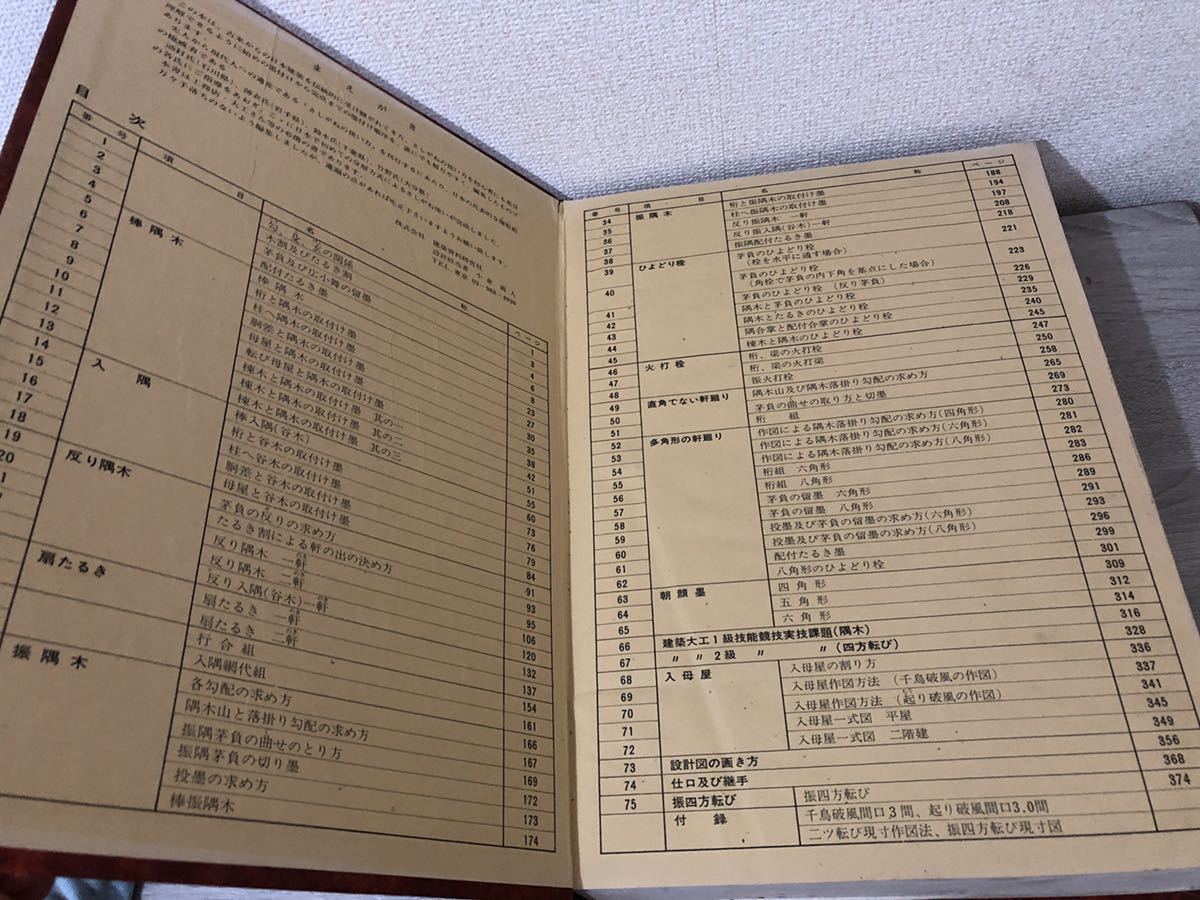 まえがき
この本は、古来からの日本建築を伝統的に受け継がれてきた、さしがねの使い方を初心者にも充分
目次
番号 項目 名称 ページ
1 棒隅木 勾、殳、玄の関係 1
2 木割及びたるき割 3
3 茅負及び広小舞の留墨 4
4 配付たるき墨 6
5 棒隅木 8
6 桁と隅木の取付け墨 23
7 柱へ隅木の取付け墨 27
8 胴差と隅木の取付け墨 30
9 母屋と隅木の取付け墨 35
10 転び母屋と隅木の取付け墨 38
11 棟木と隅木の取付け墨 其の一 42
12 棟木と隅木の取付け墨 其の二 51
13 棟木と隅木の取付け墨 其の三 55
14 入隅 棒入隅(谷木) 60
15 桁と谷木の取付け墨 73
16 柱へ谷木の取付け墨 76
17 胴差と谷木の取付け墨 79
18 母屋と谷木の取付け墨 84
19 反り隅木 茅負の反りの求め方 91
20 たるき割による軒の出の決め方 93
反り隅木 一軒 95
反り隅木 二軒 106
反り入隅(谷木)一軒 120
扇たるき 扇たるき 一軒 132
扇たるき 二軒 137
行合組 154
入隅網代組 161
振隅木 各勾配の求め方 166
隅木山と落掛り勾配の求め方 167
振隅茅負の曲せのとり方 169
振隅茅負の切り墨 172
投墨の求め方 173
棒振隅木 174
番号 項目 名称 ページ
34 振隅木 桁と振隅木の取付け墨 188
35 柱へ振隅木の取付け墨 194
36 反り振隅木 一軒 197
37 反り振入隅(谷木)一軒 208
38 振隅配付たるき墨 218
39 ひよどり栓 茅負のひよどり栓
(栓を水平に通す場合) 221
40 茅負のひよどり栓
(角栓で茅負の内下角を基点にした場合) 223
41 茅負のひよどり栓 (反り茅負) 226
42 隅木と茅負のひよどり栓 229
43 隅木とたるきのひよどり栓 235
44 隅合掌と配付合掌のひよどり栓 240
45 棟木と隅木のひよどり栓 245
46 火打栓 桁、梁の火打栓 247
47 桁、梁の火打梁 250
48 振火打栓 258
49 直角でない軒廻り 隅木山及び隅木落掛り勾配の求め方 265
50 茅負の曲せの取り方と切墨 269
51 桁組 273
52 多角形の軒廻り 作図による隅木落掛り勾配の求め方(四角形) 280
53 作図による隅木落掛り勾配の求め方(六角形) 281
54 作図による隅木落掛り勾配の求め方(八角形) 282
55 桁組 六角形 283
56 桁組 八角形 286
57 茅負の留墨 六角形 289
58 茅負の留墨 八角形 291
59 投墨及び茅負の留墨の求め方(六角形) 293
60 投墨及び茅負の留墨の求め方(八角形) 296
61 配付たるき墨 299
62 八角形のひよどり栓 301
63 朝顔墨 四角形 309
64 五角形 312
65 六角形 314
66 建築大工1級技能競技実技課題(隅木) 316
67 〃 〃 2級 〃 〃 (四方転び) 328
68 入母屋 入母屋の割り方 336
69 入母屋作図方法 (千鳥破風の作図) 337
70 入母屋作図方法 (起り破風の作図) 341
71 入母屋一式図 平屋 345
72 入母屋一式図 二階建 349
73 設計図の画き方 356
74 仕口及び継手 368
75 振四方転び 振四方転び 374
付録 千鳥破風間口3間、起り破風間口3.0間
二ツ転び現寸作図法、振四方転び現寸図